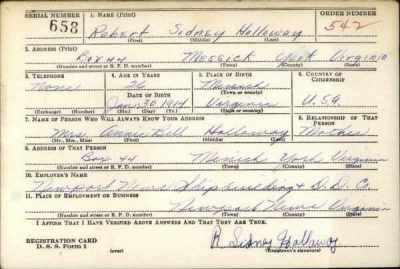 SERIAL NUMBER 1. NAME (Print) ORDER NUMBER
658 Robert Sidney Holloway 542
(First) (Middle) (Last)
2. ADDRESS (Print)
Box 44 Messick York Virginia
(Number and street or R. F. D. number) (Town) (County) (State)
3. TELEPHONE 4. AGE IN YEARS 5. PLACE OF BIRTH 6. COUNTRY OF CITIZENSHIP
None 26 Messick
DATE OF BIRTH (Town or county)
Jan. 30, 1914 Virginia U.S.A.
(Exchange) (Number) (Mo.) (Day) (Yr.) (State or country)
7. NAME OF PERSON WHO WILL ALWAYS KNOW YOUR ADDRESS 8. RELATIONSHIP OF THAT PERSON
Mrs. Annie Bell Holloway Mother
(Mr., Mrs., Miss) (First) (Middle) (Last)
9. ADDRESS OF THAT PERSON
Box 44 Messick York Virginia
(Number and street or R. F. D. number) (Town) (County) (State)
10. EMPLOYER'S NAME
Newport News Shipbuilding & D.D. C.
11. PLACE OF EMPLOYMENT OR BUSINESS
Newport News Virginia
(Number and street or R. F. D. number) (Town) (County) (State)
I AFFIRM THAT I HAVE VERIFIED ABOVE ANSWERS AND THAT THEY ARE TRUE.
REGISTRATION CARD R. Sidney Holloway
D. S. S. Form 1 (over) (Registrant's signature)